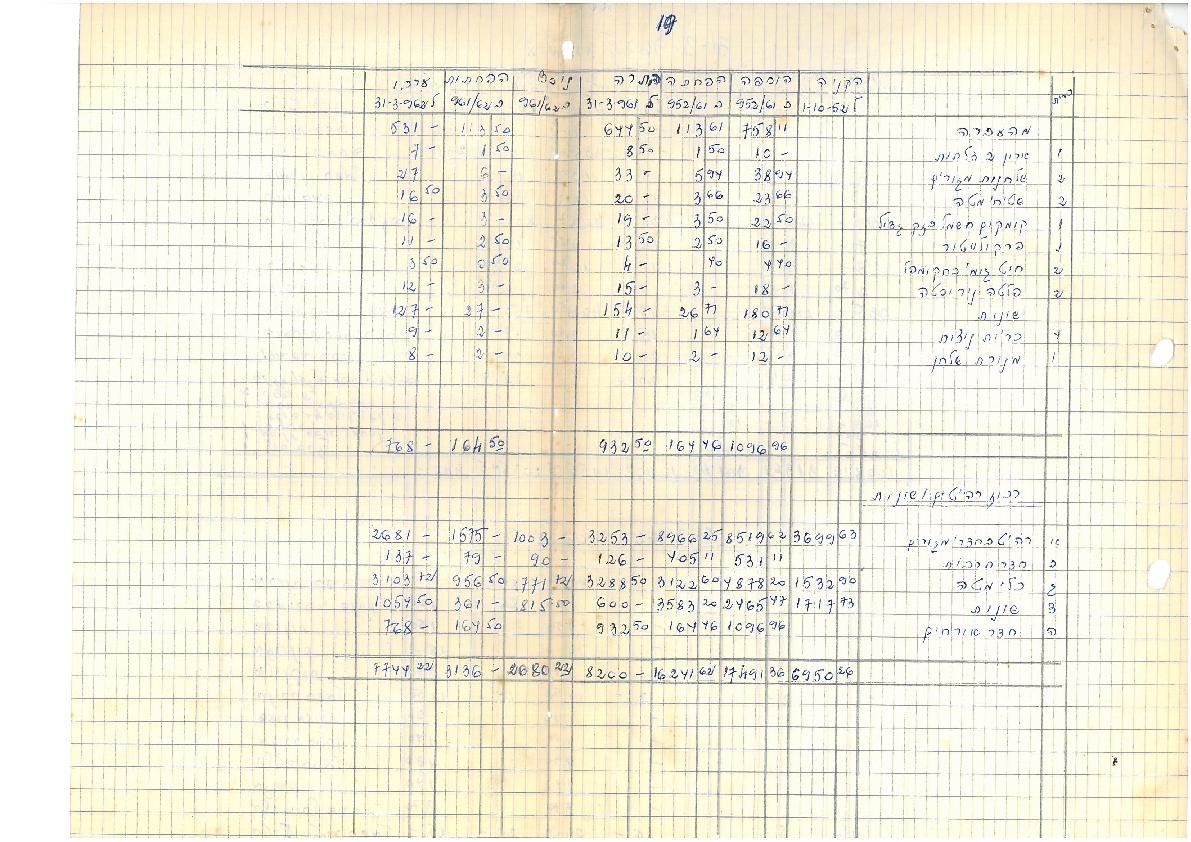 19
כמות הקניה הוספה הפחתה יתרה נוסף הפחתות ערכו
ל 1-10-52 ב 952/61 ב 952/61 ל 31-3-961 ב 961/62 ב 961/62 ל 31-3-962
מהעברה 758 11 113 61 644 50 113 50 531 -
1 ארון 2 דלתות 10 - 1 50 8 50 1 50 7 -
2 שלחנות מגורים 38 94 5 94 33 - 6 - 27
2 שטיחי מטה 23 66 3 66 20 - 3 50 16 50
1 קומקום חשמלי גדול 22 50 3 50 19 - 3 - 16 -
1 פרקולטור 16 - 2 50 13 50 2 50 11 -
2 4 40 40 4 - 0 50 3 50
2 18 - 3 - 15 - 3 - 12 -
שונות 180 77 26 77 154 - 27 - 127 -
4 כריות נוצות 12 64 1 64 11 - 2 - 9 -
1 מנורת שלחן 12 - 2 - 10 - 2 - 8 -
1096 96 164 46 932 50 164 50 768 -
רכוז רהיטים ושונות
א רהיטי חדרי מגורים 3699 63 8519 62 8966 25 3253 - 1003 - 1575 - 2681 -
ב חדר תרבות 531 11 405 11 126 - 90 - 79 - 137 -
ג כלי מטה 1532 90 4878 20 3122 60 3288 50 771 72 956 50 3103 72
ד שונות 1717 73 2465 47 3583 20 600 - 815 50 361 - 1054 50
ה חדר אורחים 1096 96 164 46 932 50 164 50 768 -
6950 26 17491 36 16241 62 8200 - 2680 22 3136 - 7744 22